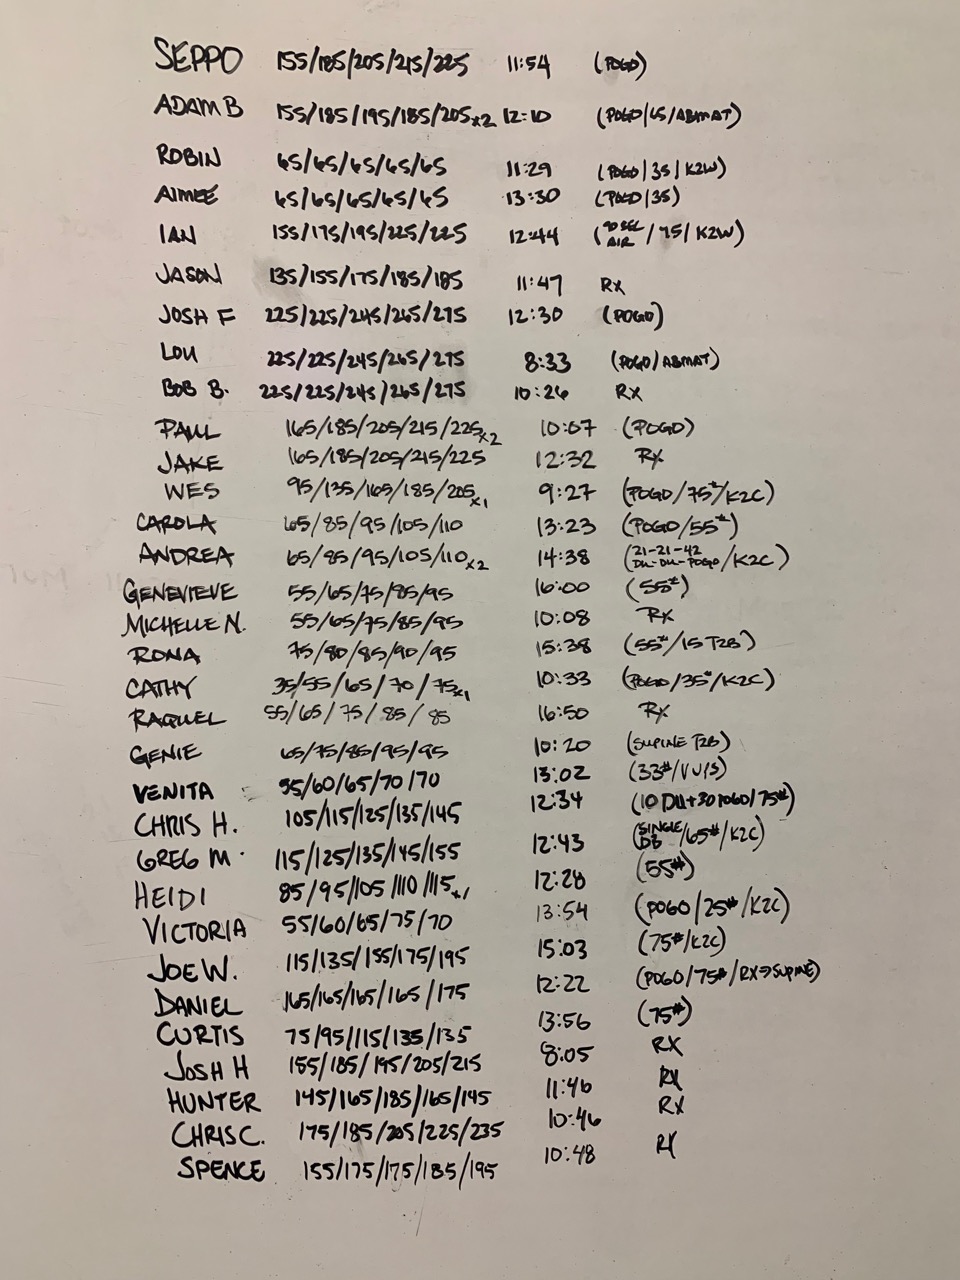 SEPPO 155/185/205/215/225 11:54 (POGO)
ADAM B 155/185/195/185/205x2 12:10 (POGO/45/ABMAT)
ROBIN 65/65/65/65/65 11:29 (POGO/35/K2W)
AIMEE 45/65/65/65/65 13:30 (POGO/35)
IAN 155/175/195/225/225 12:44 (90 SEC AIR/75/K2W)
JASON 135/155/175/185/185 11:47 RX
JOSH F 225/225/245/265/275 12:30 (POGO)
LOU 225/225/245/265/275 8:33 (POGO/ABMAT)
BOB B. 225/225/245/265/275 10:26 RX
PAUL 165/185/205/215/225x2 10:07 (POGO)
JAKE 165/185/205/215/225 12:32 RX
WES 95/135/165/185/205x1 9:27 (POGO/75#/K2C)
CAROLA 65/85/95/105/110 13:23 (POGO/55#)
ANDREA 65/85/95/105/110x2 14:38 (21-21-42 DU-DU-POGO/K2C)
GENEVIEVE 55/65/75/85/95 16:00 (55#)
MICHELLE N. 55/65/75/85/95 10:08 RX
RONA 75/80/85/90/95 15:38 (55#/15 T2B)
CATHY 35/55/65/70/75x1 10:33 (POGO/35#/K2C)
RAQUEL 55/65/75/85/85 16:50 RX
GENIE 65/75/85/95/95 10:20 (SUPINE T2B)
VENITA 55/60/65/70/70 13:02 (33#/VU/S)
CHRIS H. 105/115/125/135/145 12:34 (10 DU+30 POGO/75#)
GREG M. 115/125/135/145/155 12:43 (SINGLE DB/65#/K2C)
HEIDI 85/95/105/110/115x1 12:28 (55#)
VICTORIA 55/60/65/75/70 13:54 (POGO/25#/K2C)
JOE W. 115/135/155/175/195 15:03 (75#/K2C)
DANIEL 165/165/165/165/175 12:22 (POGO/75#/RX→SUPINE)
CURTIS 75/95/115/135/135 13:56 (75#)
JOSH H 155/185/195/205/215 8:05 RX
HUNTER 145/165/185/165/145 11:46 RX
CHRIS C. 175/185/205/225/235 10:46 RX
SPENCE 155/175/175/185/195 10:48 RX